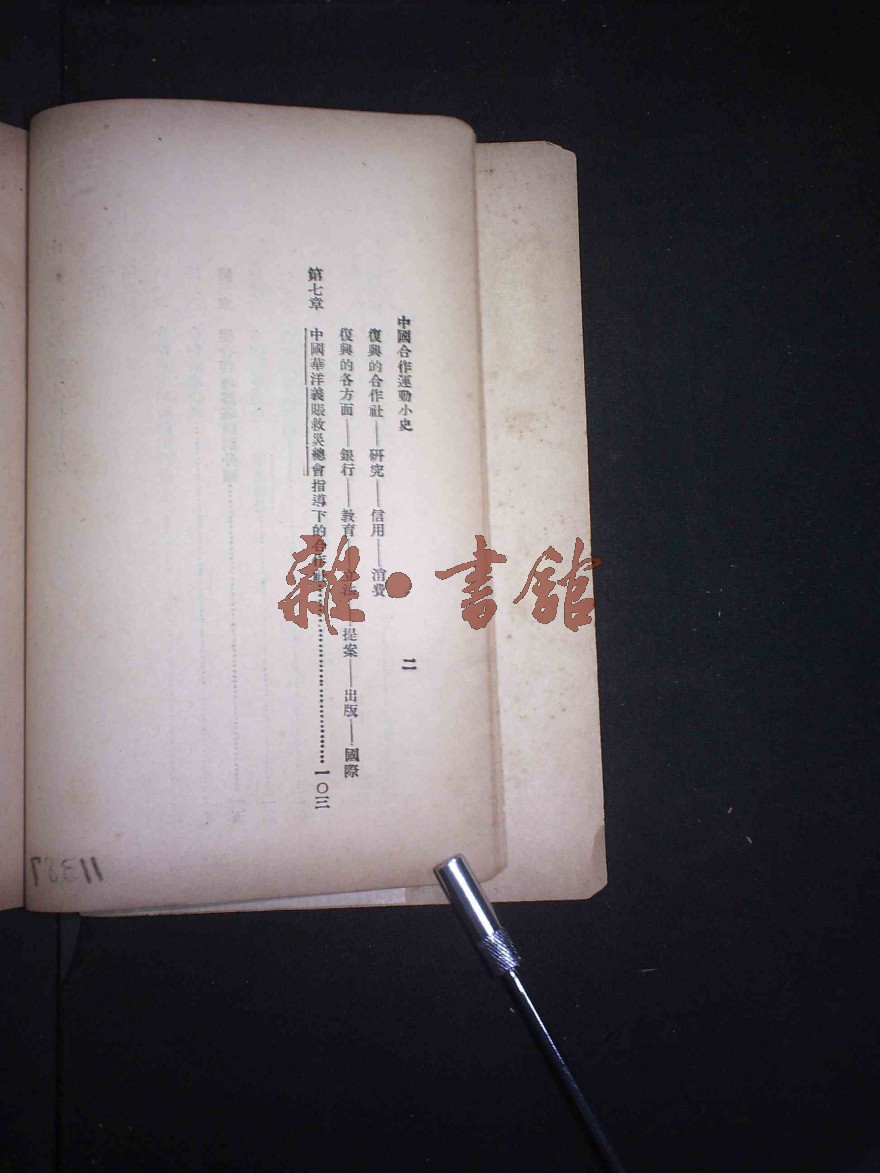 中國合作運動小史
二
復興的合作社——研究——信用——消費
復興的各方面——銀行——教育——立法——提案——出版——國際
第七章 中國華洋義賑救災總會指導下的合作社……………………一〇三
雜·書館